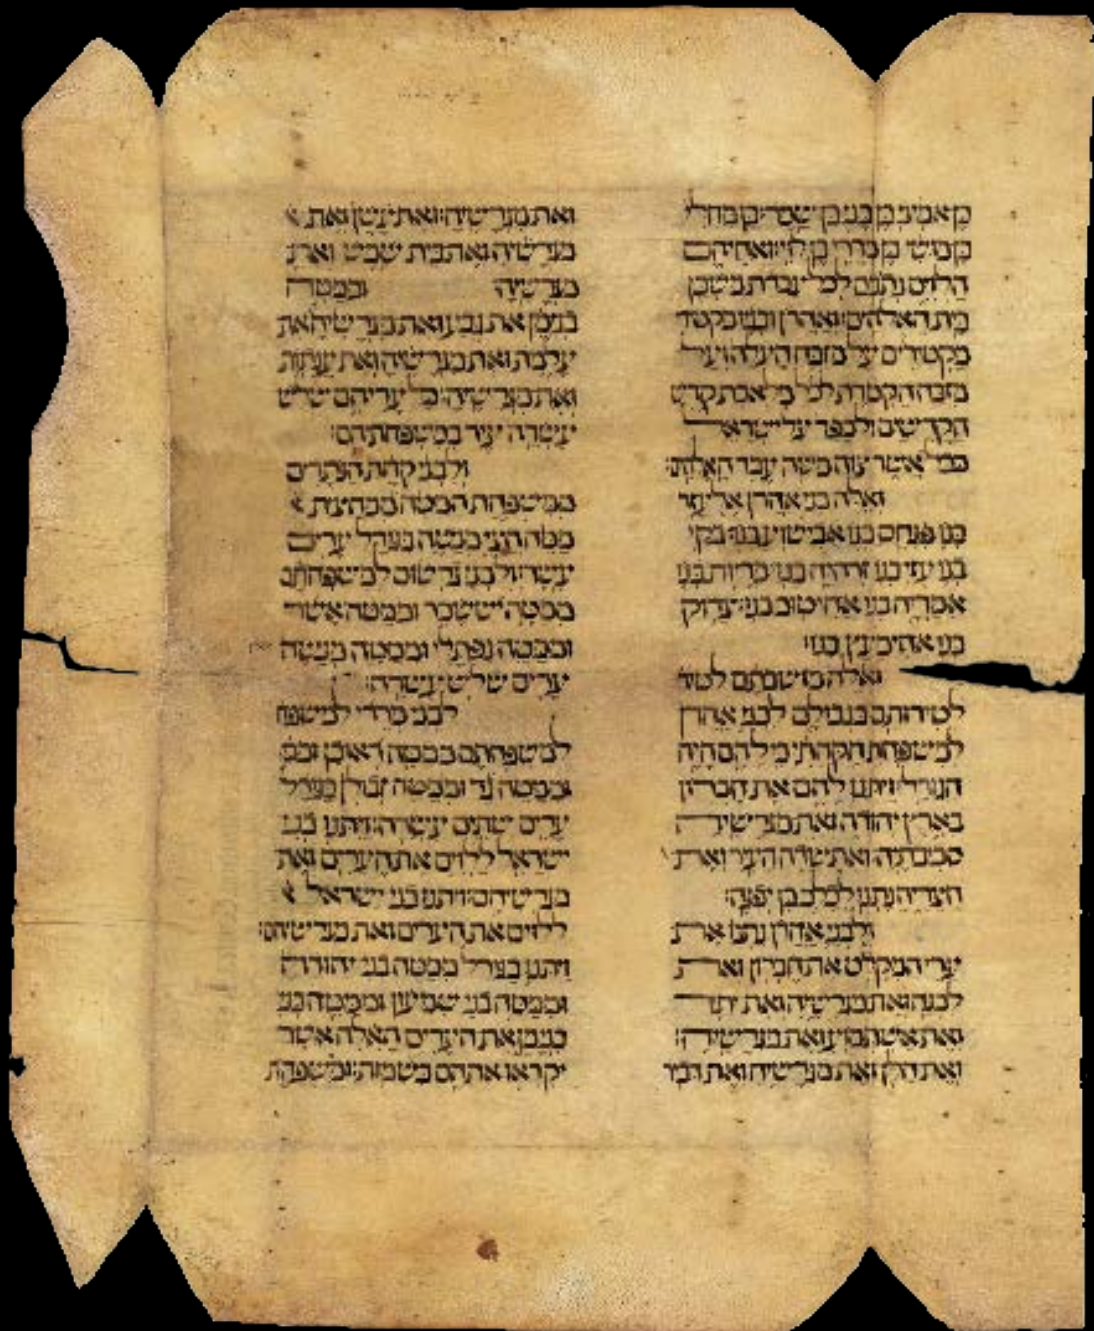 בן אמצי בן בני בן שמר: בן מחלי
בן מושי בן מררי בן לוי: ואחיהם
הלוים נתנם לכל עבדת משכן
בית האלהים: ואהרן ובניו מקטר
מקטירים על מזבח העלה ועל
מזבח הקטרת לכל מלאכת קדש
הקדשים ולכפר על ישראל
ככל אשר צוה משה עבד האלהים:
ואלה בני אהרן אלעזר
בנו פנחס בנו אבישוע בנו: בקי
בנו עזי בנו זרחיה בנו: מריות בנו
אמריה בנו אחיטוב בנו: צדוק
בנו אחימעץ בנו:
ואלה מושבתם לטיר
לטירותם בגבולם לבני אהרן
למשפחת הקהתי כי להם היה
הגרל: ויתנו להם את חברון
בארץ יהודה ואת מגרשיה
סביבתיה: ואת שדה העיר ואת
חצריה נתנו לכלב בן יפנה:
ולבני אהרן נתנו את
ערי המקלט את חברון ואת
לבנה ואת מגרשיה ואת יתר
ואת אשתמוע ואת מגרשיה:
ואת חילן ואת מגרשיה ואת דביר
ואת מגרשיה: ואת עשן ואת
מגרשיה ואת בית שמש ואת
מגרשיה וממטה
בנימן את גבע ואת מגרשיה ואת
עלמת ואת מגרשיה ואת ענתות
ואת מגרשיה כל עריהם שלש
עשרה עיר במשפחתהם:
ולבני קהת הנתרים
ממשפחת המטה ממחצית
מטה חצי מנשה בגרל ערים
עשר: ולבני גרשום למשפחתם
ממטה יששכר וממטה אשר
וממטה נפתלי וממטה מנשה
ערים שלש עשרה:
לבני מררי למשפח
למשפחתם ממטה ראובן וממ
וממטה גד וממטה זבולן בגרל
ערים שתים עשרה: ויתנו בני
ישראל ללוים את הערים ואת
מגרשיהם: ויתנו בני ישראל
ללוים את הערים ואת מגרשיהם:
ויתנו בגרל ממטה בני יהודה
וממטה בני שמעון וממטה בני
בנימן את הערים האלה אשר
יקראו אתהם בשמות: וממשפחת